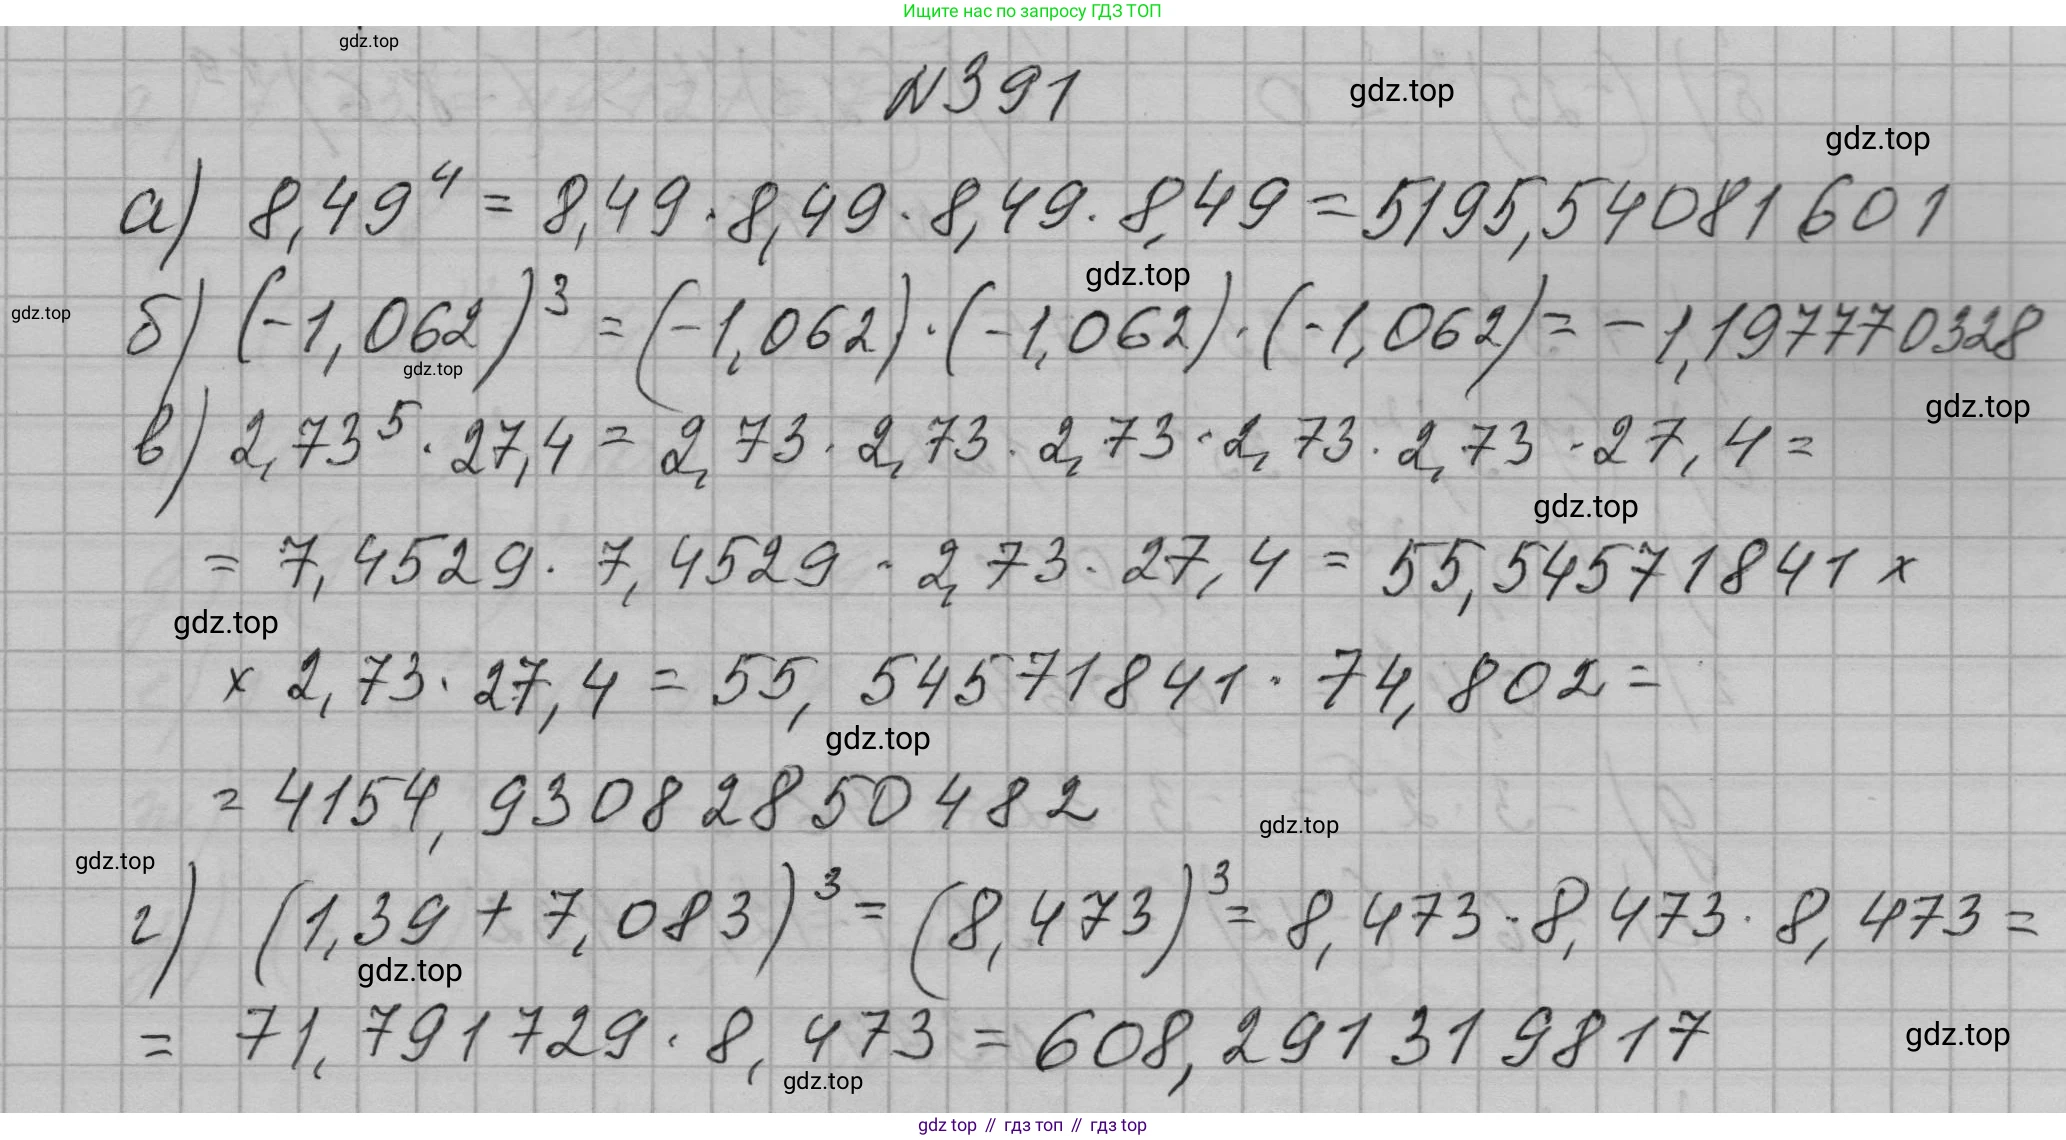 Ищите нас по запросу ГДЗ ТОП
gdz.top
№391
gdz.top
gdz.top
а) 8,49⁴ = 8,49 · 8,49 · 8,49 · 8,49 = 5195,54081601
gdz.top
gdz.top
б) (-1,062)³ = (-1,062) · (-1,062) · (-1,062) = -1,197770328
gdz.top
gdz.top
в) 2,73⁵ · 27,4 = 2,73 · 2,73 · 2,73 · 2,73 · 2,73 · 27,4 =
gdz.top
= 7,4529 · 7,4529 · 2,73 · 27,4 = 55,54571841 ×
gdz.top
× 2,73 · 27,4 = 55,54571841 · 74,802 =
gdz.top
= 4154,93082850482
gdz.top
gdz.top
г) (1,39 + 7,083)³ = (8,473)³ = 8,473 · 8,473 · 8,473 =
gdz.top
= 71,791729 · 8,473 = 608,291319817
gdz.top
gdz.top
gdz top // гдз топ // gdz top